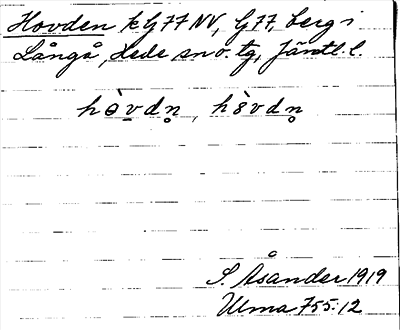 Hovden k G77 NV, G77, berg i
Långå, Hede sn o. tg, Jämtl. l.
hòvdn̥, hòvdn̥
S. Åsander 1919
Ulma 755:12